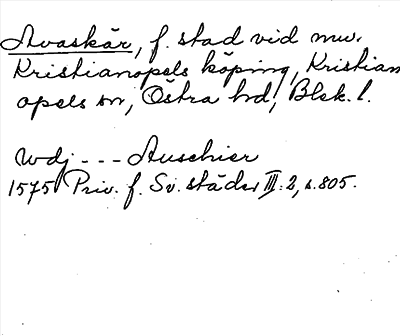 Avaskär, f. stad vid nuv.
Kristianopels köping, Kristian
opels sn, Östra hd, Blek. l.
wdj --- Auschier
1575 Priv. f. Sv. städer III: 2, s. 805.